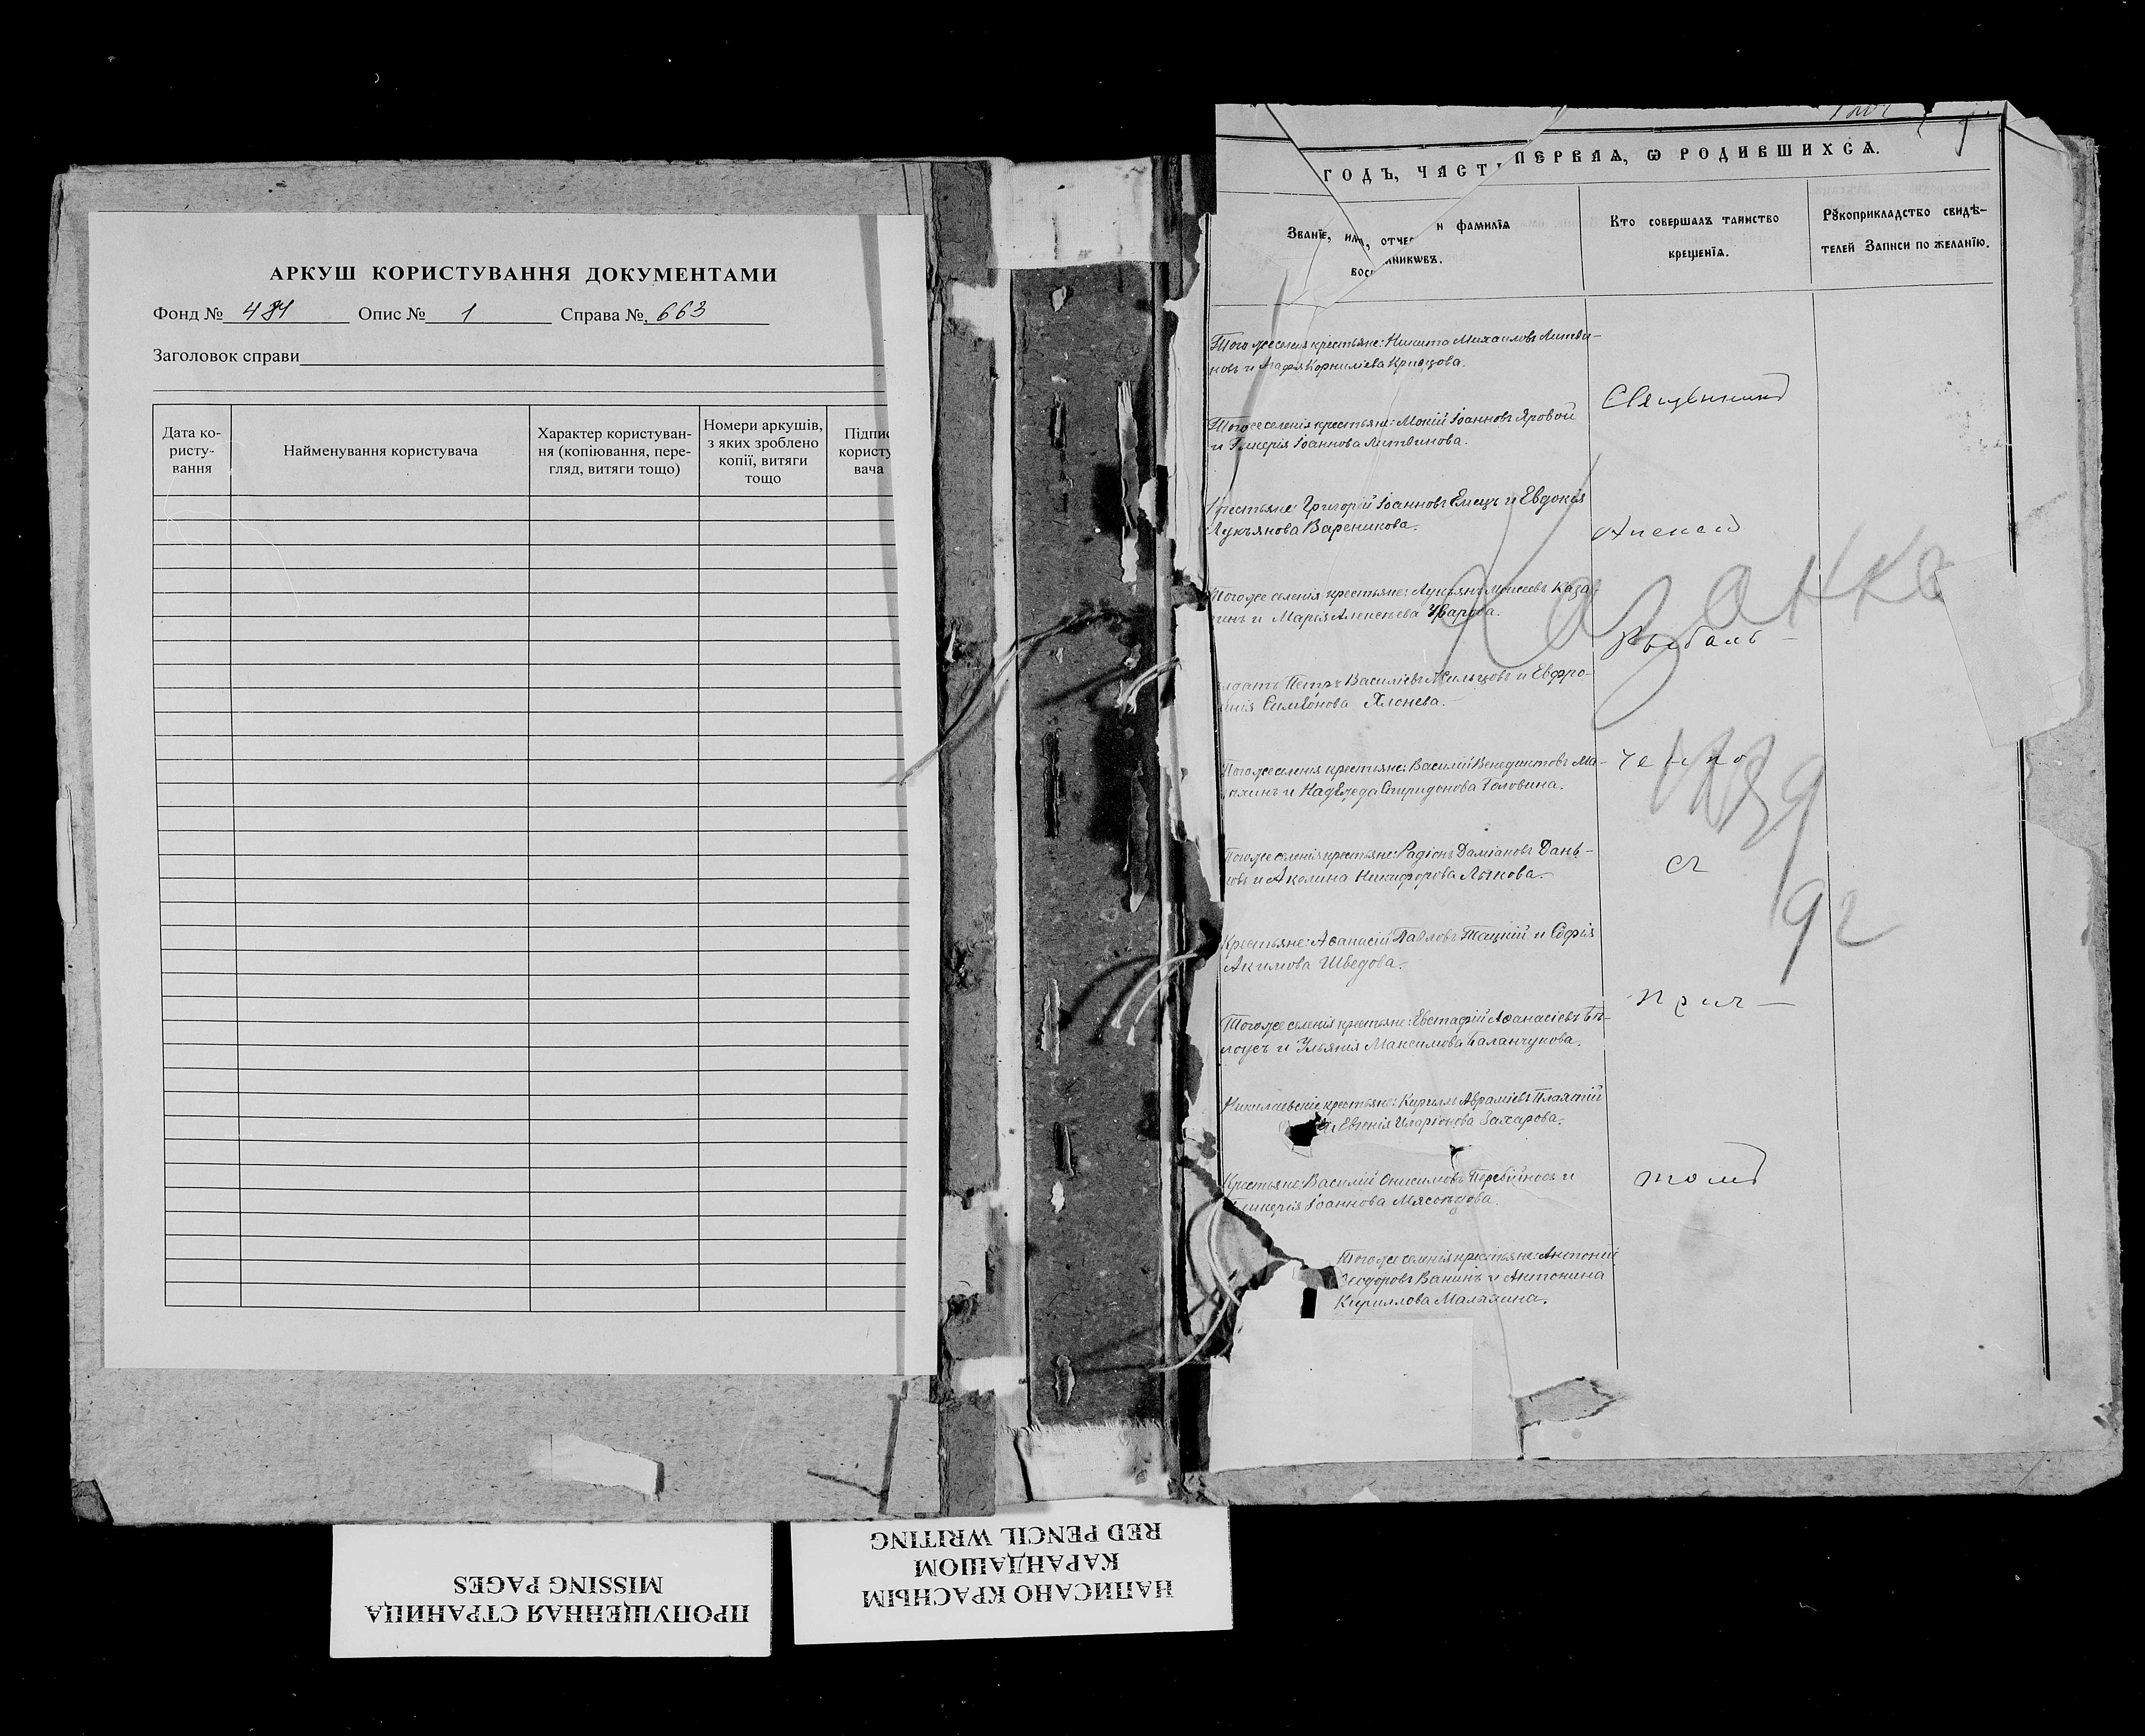 АРКУШ КОРИСТУВАННЯ ДОКУМЕНТАМИ
Фонд № 484 Опис № 1 Справа №. 663
Заголовок справи
Дата ко-
ристу-
вання
Найменування користувача
Характер користуван-
ня (копіювання, пере-
гляд, витяги тощо)
Номери аркушів,
з яких зроблено
копії, витяги
тощо
Підпис
користу
вача
ГОДЪ, ЧАСТЬ ПЕРВАЯ, Ѡ РОДИВШИХСѦ.
Званїе, имѧ, отчес н фамилїѧ
вос никѡвъ.
Кто совершалъ таинство
крещенїѧ.
Рꙋкоприкладство свидѣ-
телей Записи по желанїю.
Того же селенія крестьяне: Никита Михаиловъ Литви-
новъ и Агафія Корниліева Кривцова.
Того же селенія крестьяне: Мокій Іоанновъ Яровой
и Гликерія Іоаннова Литвинова.
Крестьяне: Григорій Іоанновъ Емецъ и Евдокія
Лукьянова Вареникова.
Того же селенія крестьяне: Лукьянъ Моисеевъ Каза-
и Марія Алексѣева Уварова.
Петръ Василіевъ Жильцовъ и Евфро-
Симеонова
Того же селенія крестьяне: Василій Венедиктовъ Ма-
и Надежда Спиридонова Головина.
Того же селенія крестьяне: Радіонъ Даміановъ Дань-
ковъ и Акелина Никифорова Лыкова.
Крестьяне: Аѳанасій Павловъ Тацкій и Софія
Акимова Шведова.
Того же селенія крестьяне: Евстафій Аѳанасіевъ Бѣ-
лоусъ и Ульянія Максимова Баланчукова.
Николаевскіе крестьяне: Кириллъ Авраміевъ
и Евгенія Иларіонова Захарова.
Крестьяне: Василій Онисимовъ Перебійносъ и
Гликерія Іоаннова Мясоѣдова.
Того же селенія крестьяне: Антоній
Ѳеодоровъ Ванинъ и Антонина
Кириллова Малахина.
Священникъ
Алексей
Рыбаль-
ченко
съ
прич-
томъ
Казанка
1889
92
ПРОПУЩЕННАЯ СТРАНИЦА
MISSING PAGES
НАПИСАНО КРАСНЫМ
КАРАНДАШОМ
RED PENCIL WRITING